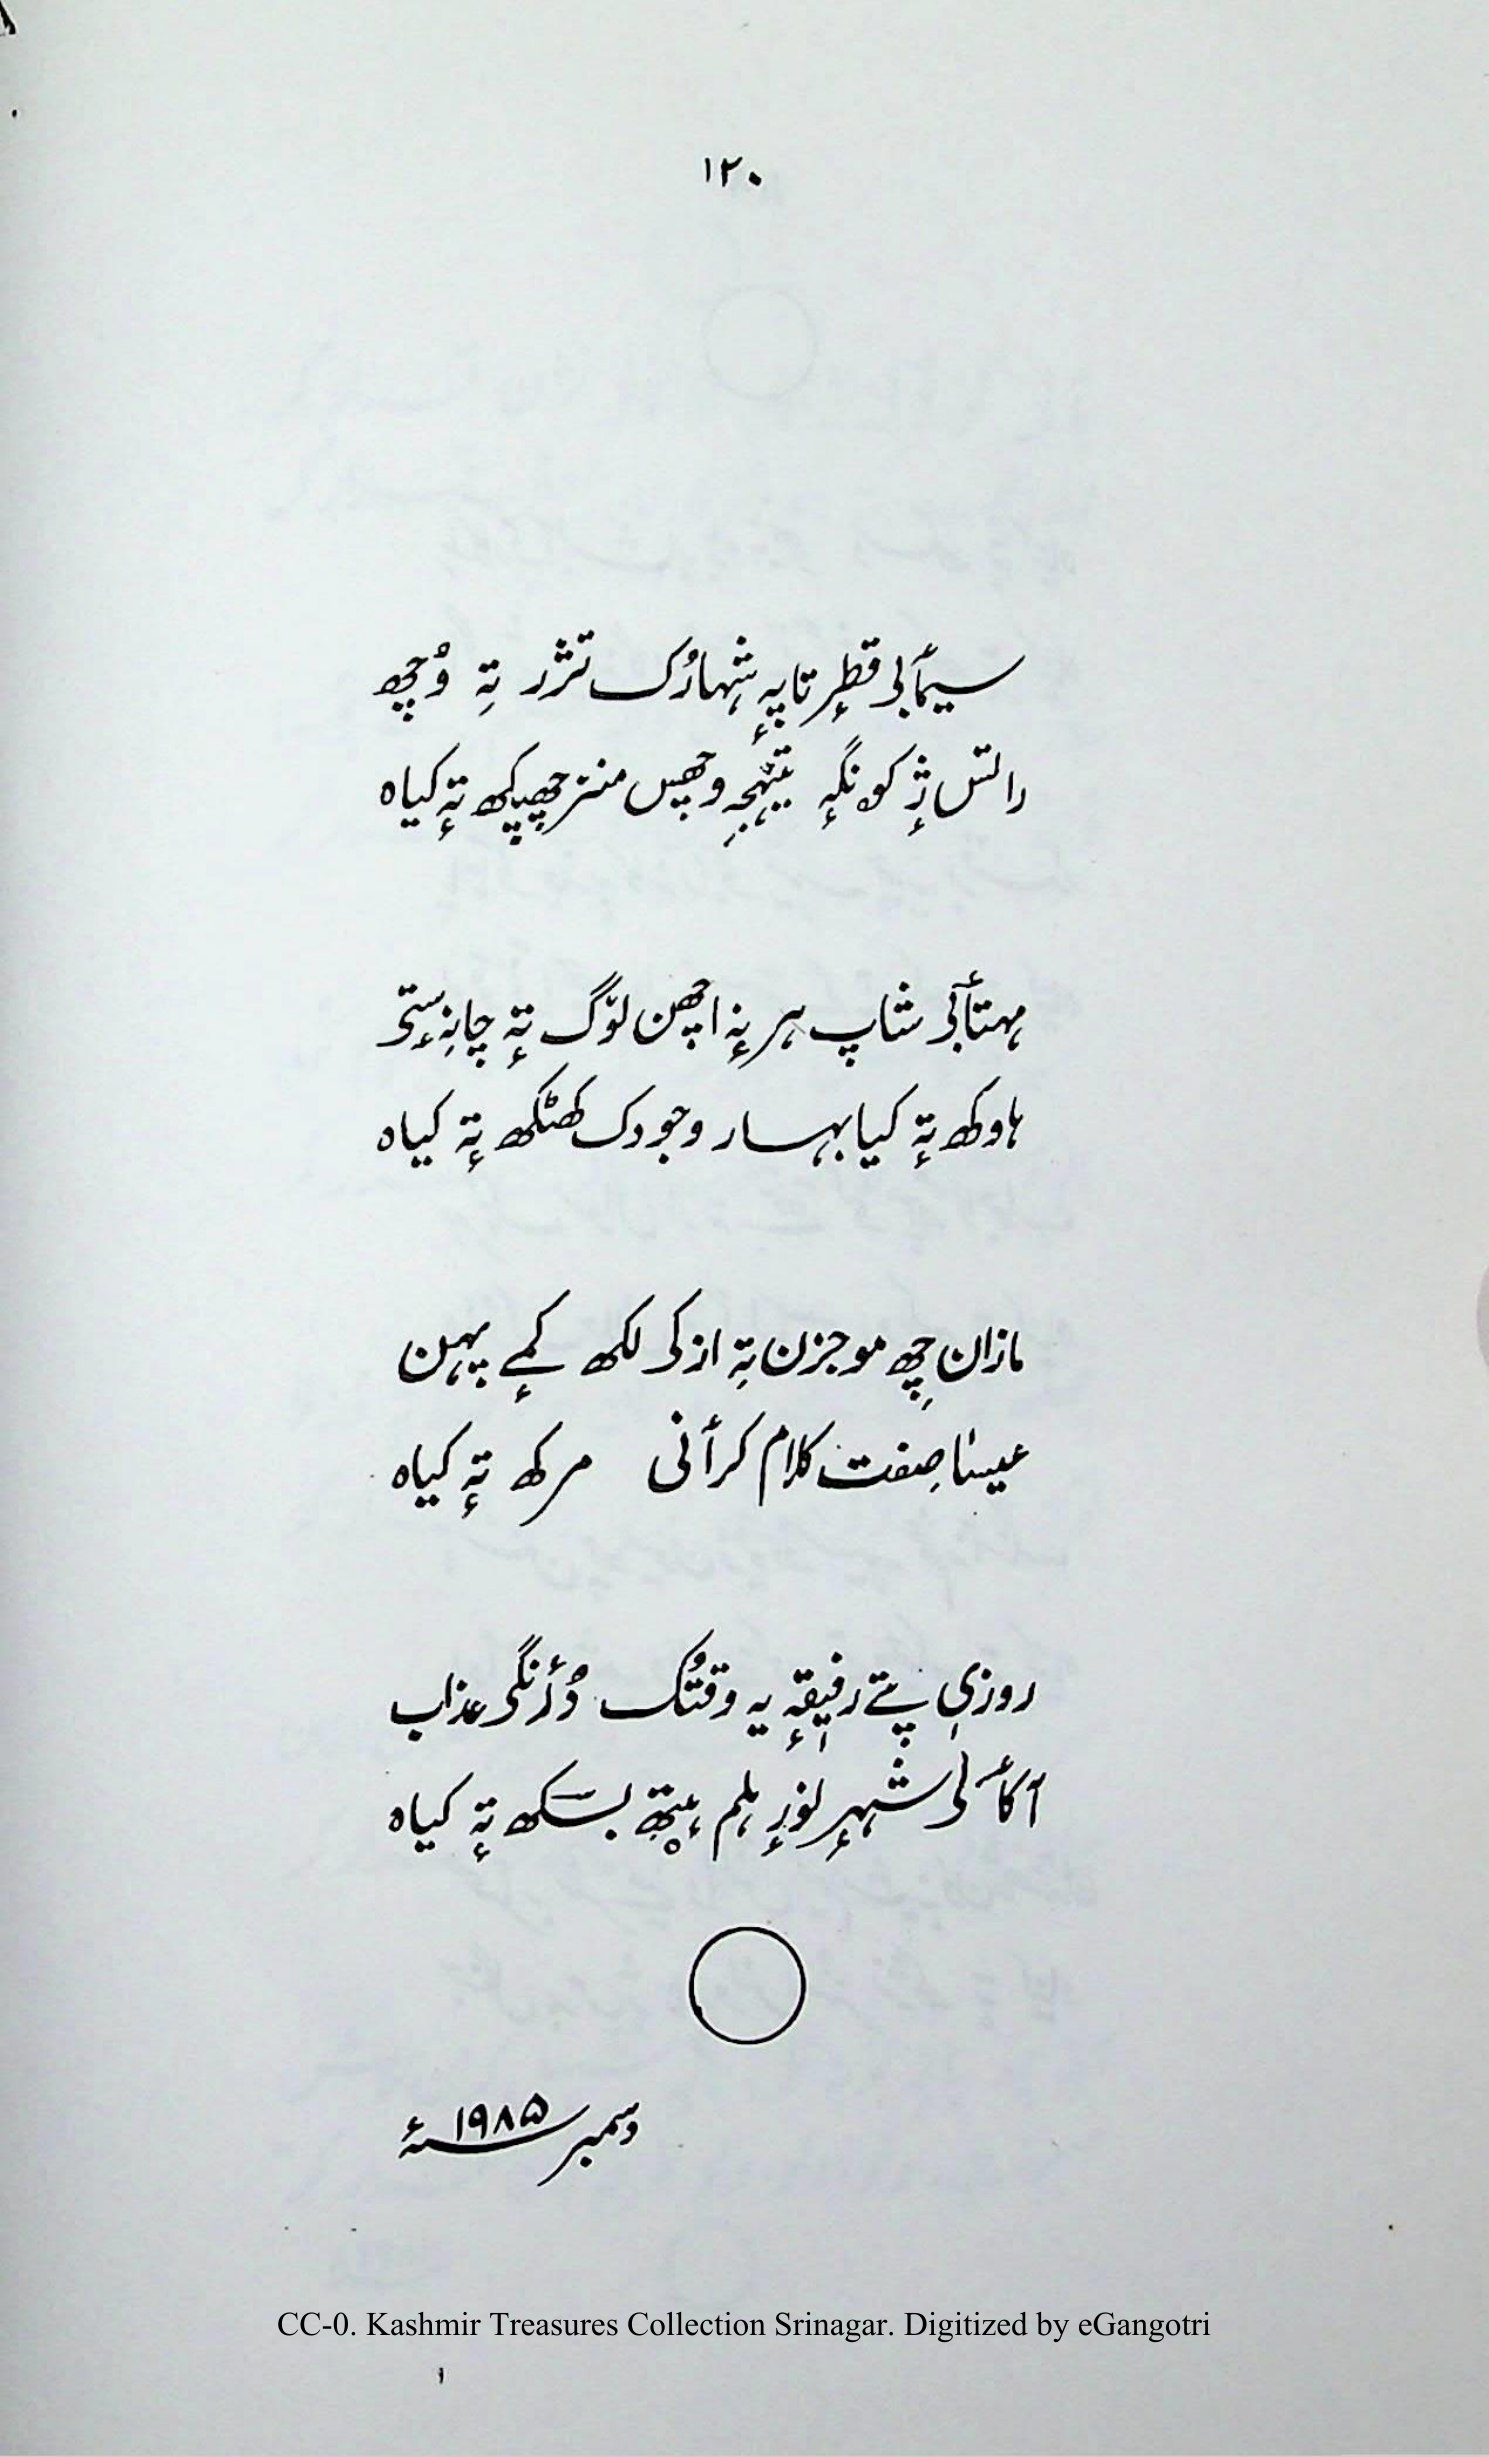 ۱۲۰
سیمأبی قطرٕ تاپہٕ شہارُک تژر تہِ وُچھ
رالتس ژٕ کونگہٕ تیتھجہِ وچھس منز چھپکھ تہٕ کیاہ
مہتأبی شاپ ہر یہٕ اچھن لوٚگ تہٕ چانہِ سٟتی
ہاوکھ تہٕ کیا بہار وجودک کھٹکھ تہٕ کیاہ
مازان چھِ موجزن تہِ ازکی لکھ کمے پہن
عیسٰا صِفت کلام کرأنی مرکھ تہٕ کیاہ
روزی پتے رفیقہٕ یہ وقتُک دۄرنگی عذاب
آکأسی شہرٕ نورٕ ہلم ہیتھ بسکھ تہٕ کیاہ
دسمبر ۱۹۸۵ء
CC-0. Kashmir Treasures Collection Srinagar. Digitized by eGangotri